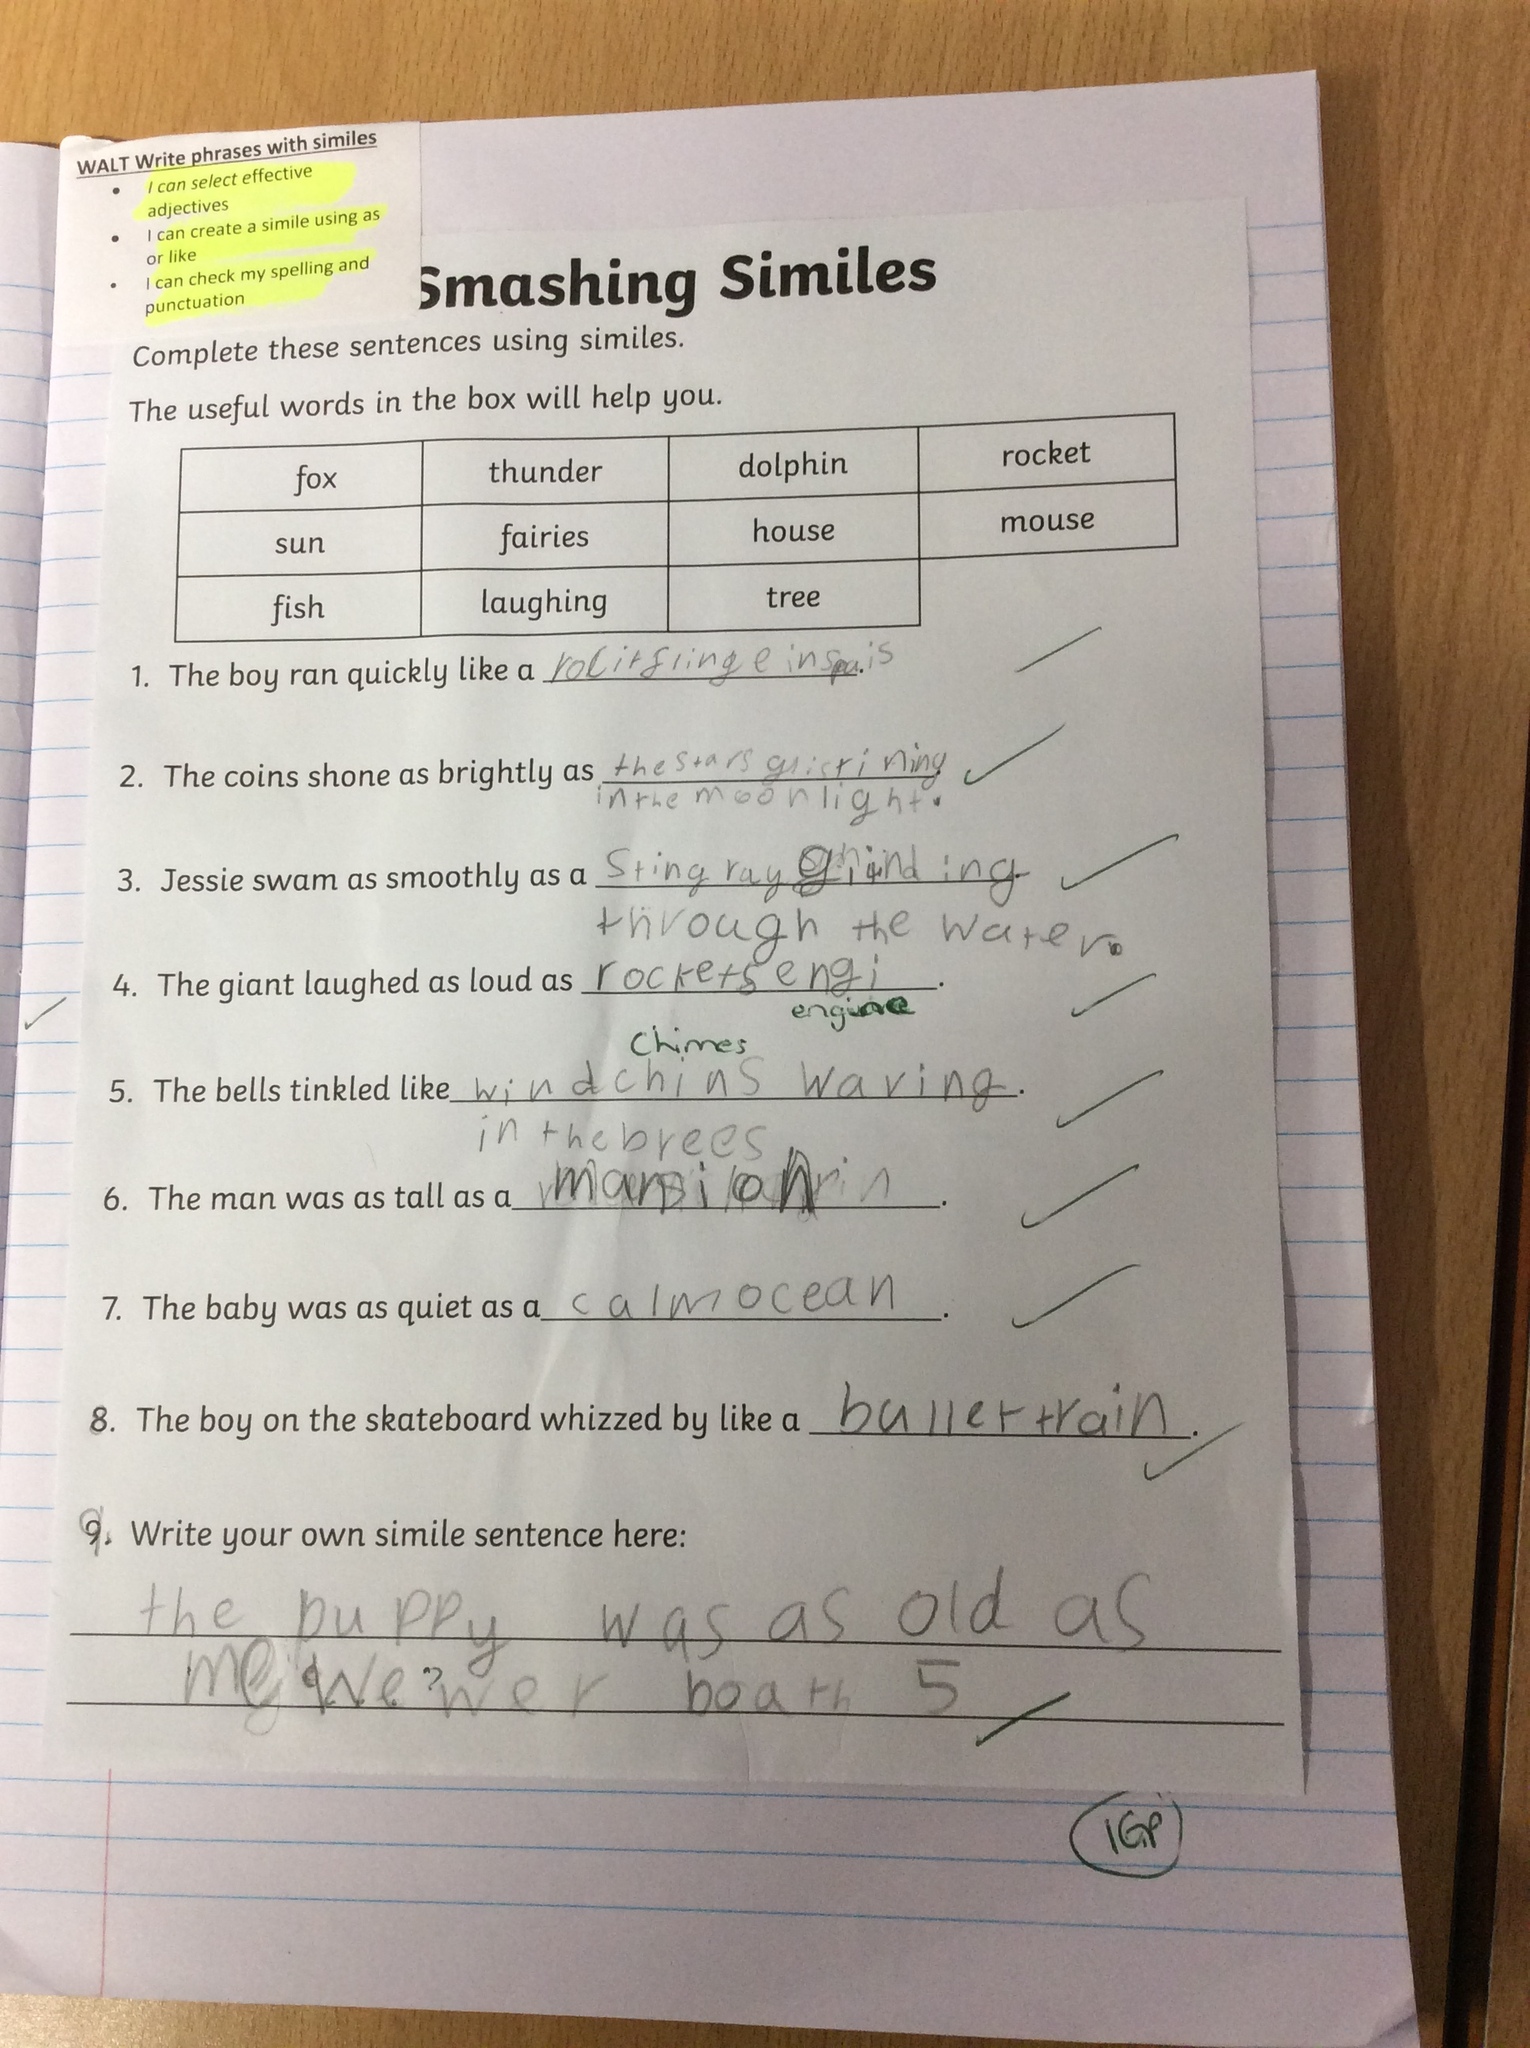 WALT Write phrases with similes
• I can select effective
adjectives
• I can create a simile using as
or like
• I can check my spelling and
punctuation
Smashing Similes
Complete these sentences using similes.
The useful words in the box will help you.
fox thunder dolphin rocket
sun fairies house mouse
fish laughing tree
1. The boy ran quickly like a
2. The coins shone as brightly as the stars
in the moonlight.
3. Jessie swam as smoothly as a Sting ray
through the water.
4. The giant laughed as loud as rockets engi.
engine
Chimes
5. The bells tinkled like wind chins waving.
in the brees
6. The man was as tall as a mansion.
7. The baby was as quiet as a calm ocean.
8. The boy on the skateboard whizzed by like a bullet train.
9. Write your own simile sentence here:
the puppy was as old as
me we wer boath 5
IGP